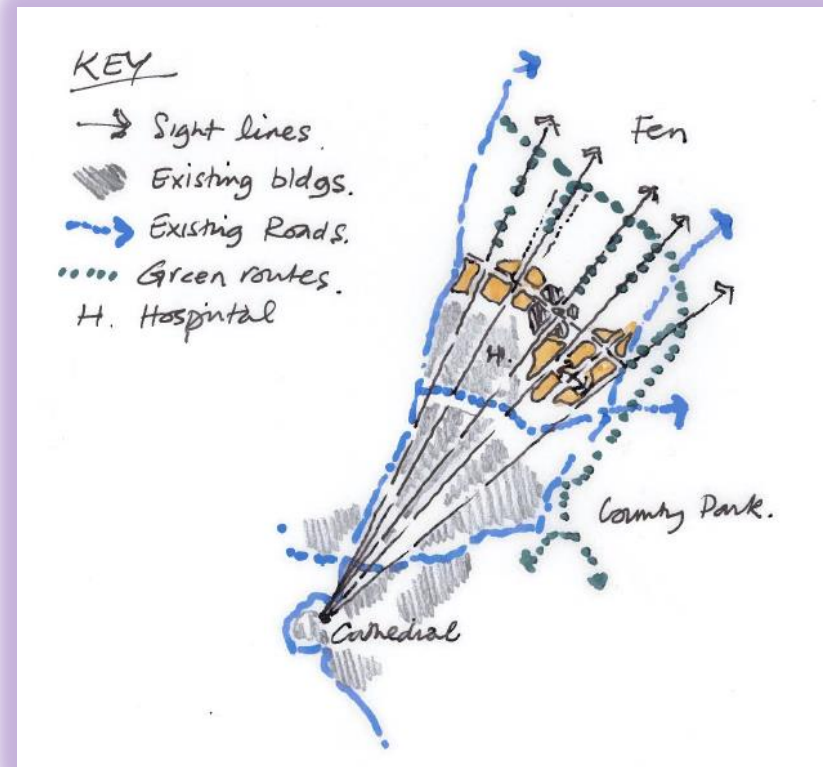 KEY
Sight lines.
Existing bldgs.
Existing Roads.
Green routes.
H. Hospintal
Fen
H.
Country Park.
Cathedral